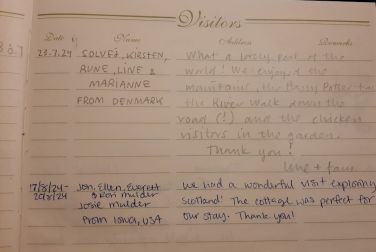 Visitors
Date Name Address Remarks
23.7.24 SOLVEJ, KIRSTEN, What a lovely part of the
RUNE, LINE & world! We enjoyed the
MARIANNE mountains, the Harry Potter
FROM DENMARK the River Walk down the
road (!) and the chicken
visitors in the garden.
Thank you!
17/8/24- Jon, Ellen, Everett We had a wonderful visit exploring
20/8/24 & Ron Mulder Scotland! The cottage was perfect for
Josie Mulder our stay. Thank you!
From Iowa, USA